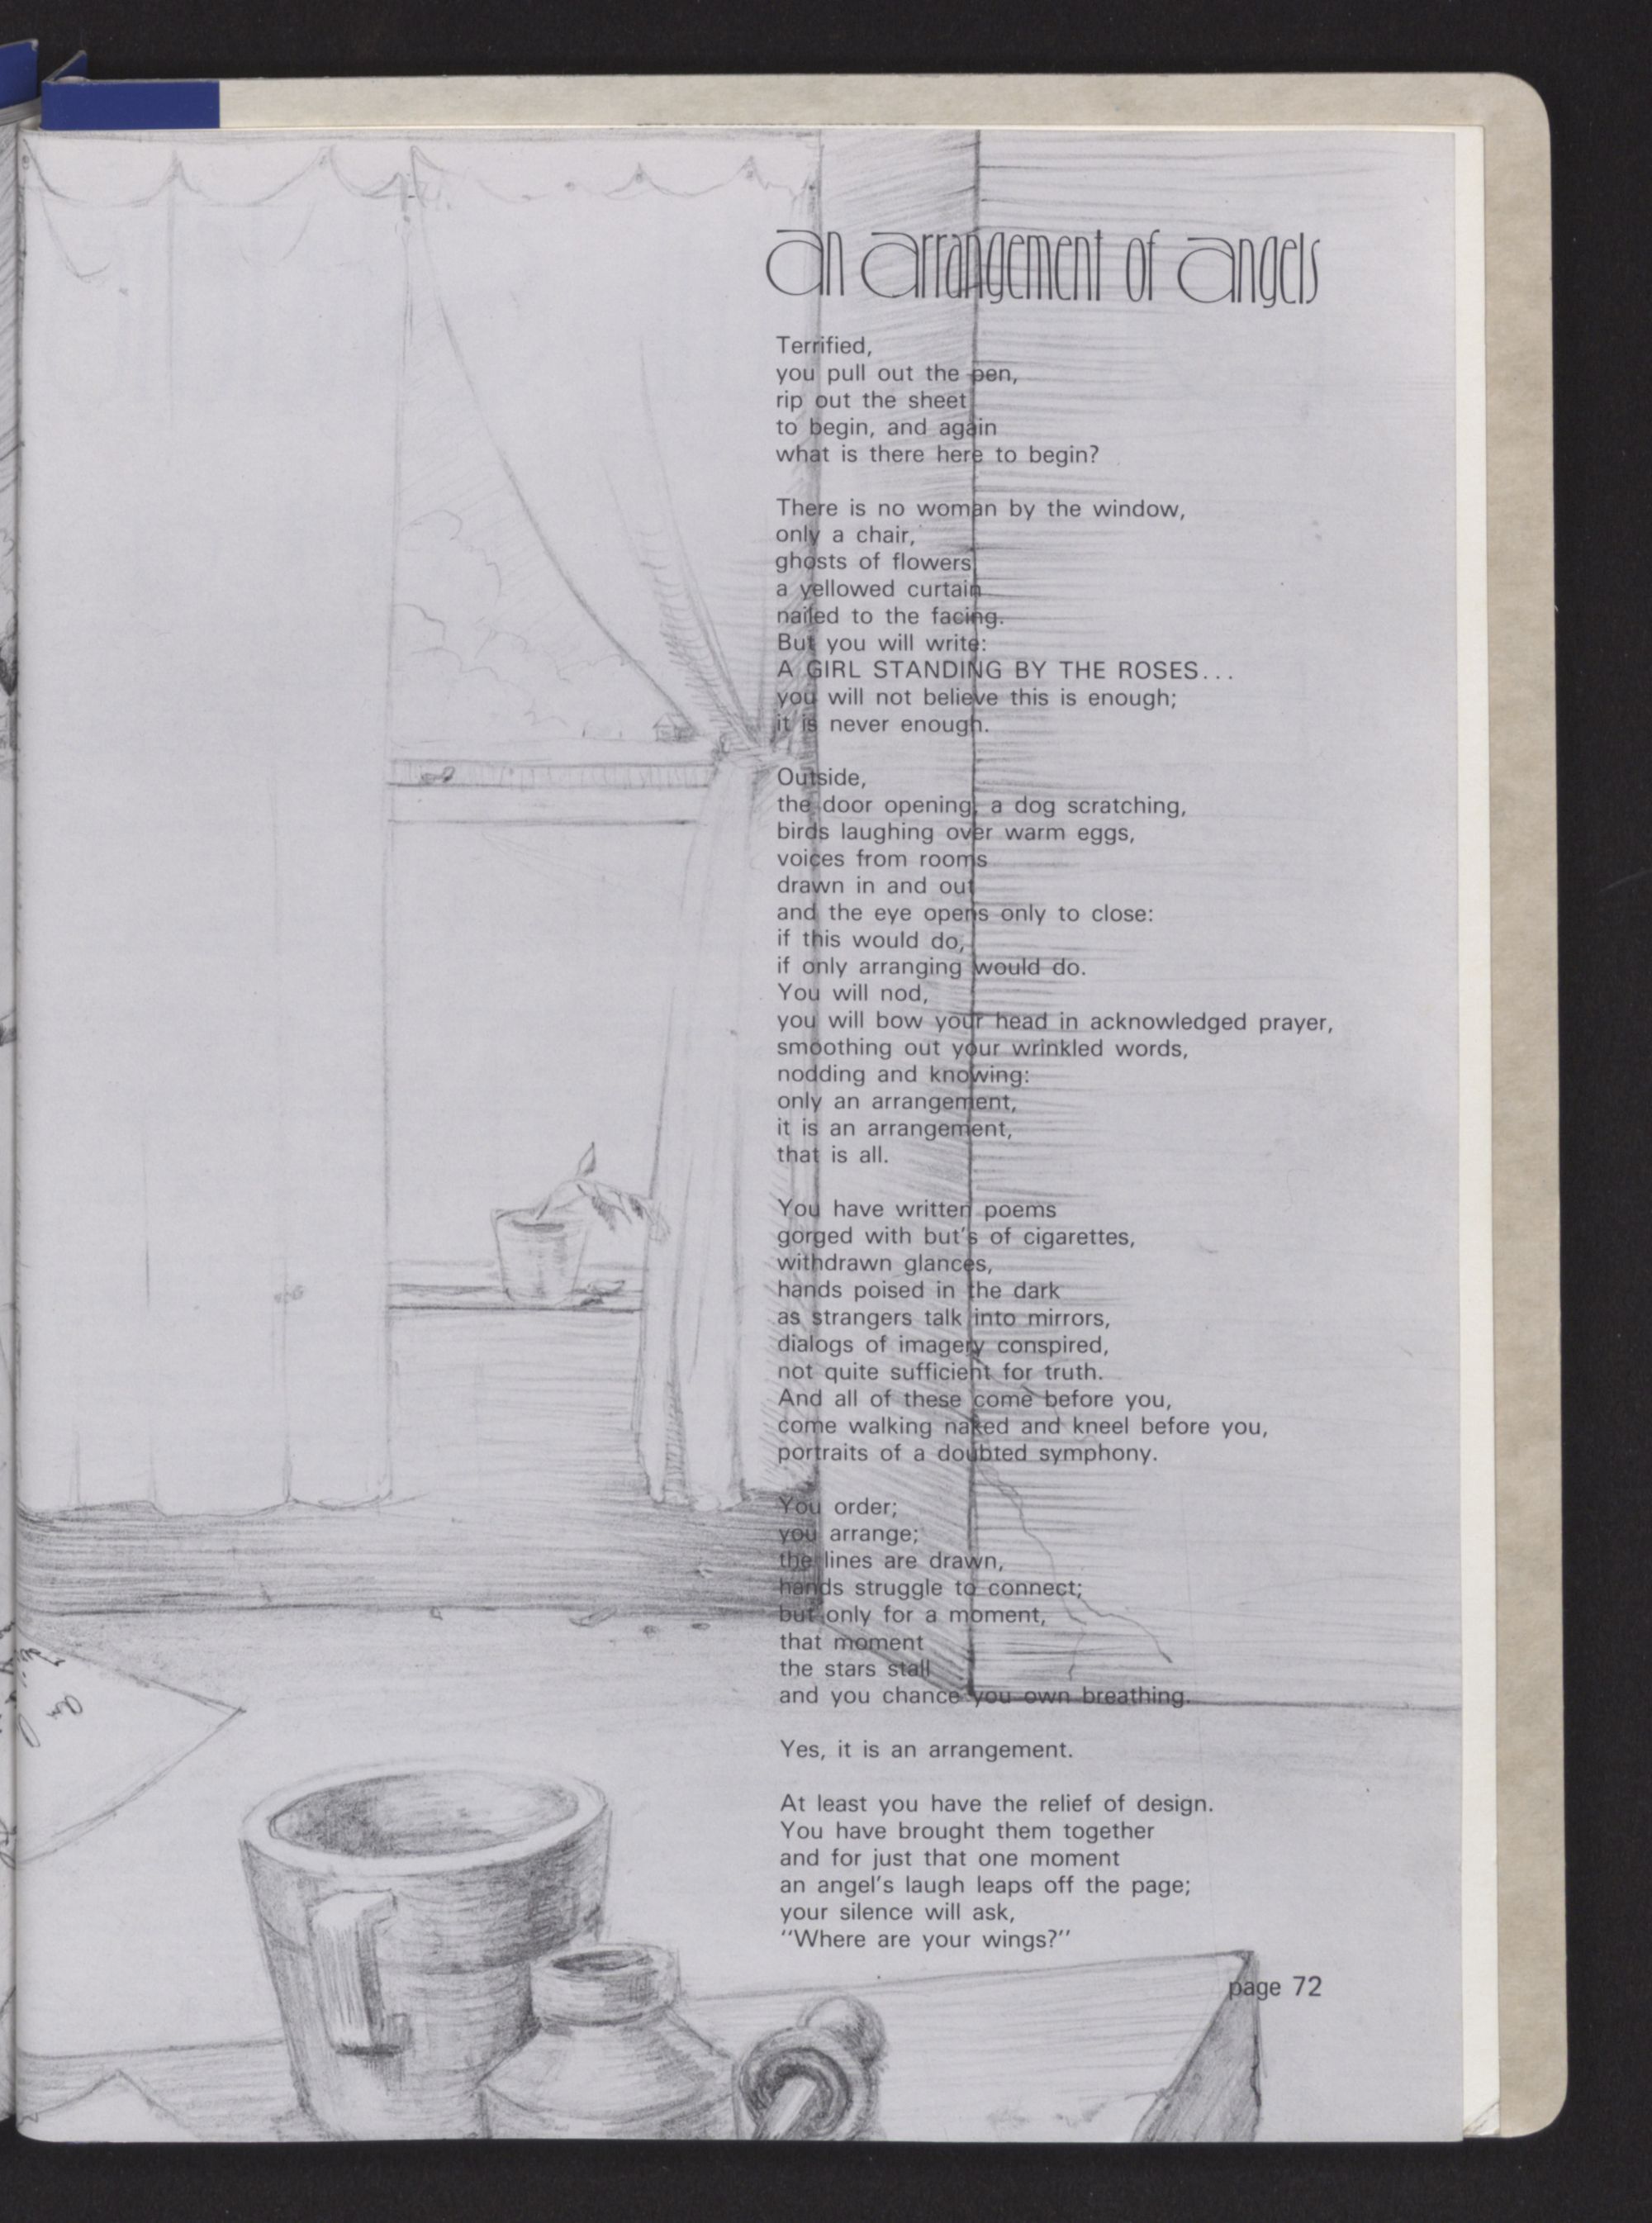 an arrangement of angels
Terrified,
you pull out the pen,
rip out the sheet
to begin, and again
what is there here to begin?
There is no woman by the window,
only a chair,
ghosts of flowers,
a yellowed curtain
nailed to the facing.
But you will write:
A GIRL STANDING BY THE ROSES...
you will not believe this is enough;
it is never enough.
Outside,
the door opening, a dog scratching,
birds laughing over warm eggs,
voices from rooms
drawn in and out
and the eye opens only to close:
if this would do,
if only arranging would do.
You will nod,
you will bow your head in acknowledged prayer,
smoothing out your wrinkled words,
nodding and knowing:
only an arrangement,
it is an arrangement,
that is all.
You have written poems
gorged with but's of cigarettes,
withdrawn glances,
hands poised in the dark
as strangers talk into mirrors,
dialogs of imagery conspired,
not quite sufficient for truth.
And all of these come before you,
come walking naked and kneel before you,
portraits of a doubted symphony.
You order;
you arrange;
the lines are drawn,
hands struggle to connect;
but only for a moment,
that moment
the stars stall
and you chance you own breathing.
Yes, it is an arrangement.
At least you have the relief of design.
You have brought them together
and for just that one moment
an angel's laugh leaps off the page;
your silence will ask,
"Where are your wings?"
page 72